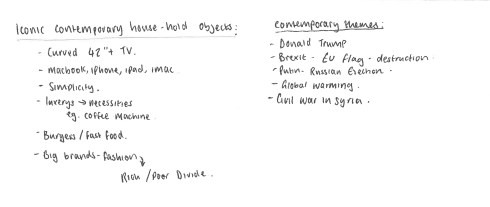 Iconic contemporary house-hold objects:
- Curved 42"+ TV.
- Macbook, iphone, ipad, imac.
- Simplicity.
- Luxerys → necessities
eg. coffee machine.
- Burgers / fast food.
- Big brands - fashion
Rich / Poor Divide.
Contemporary themes:
- Donald Trump
- Brexit - EU flag - destruction.
- Putin - Russian Election.
- Global warming.
- Civil war in Syria.